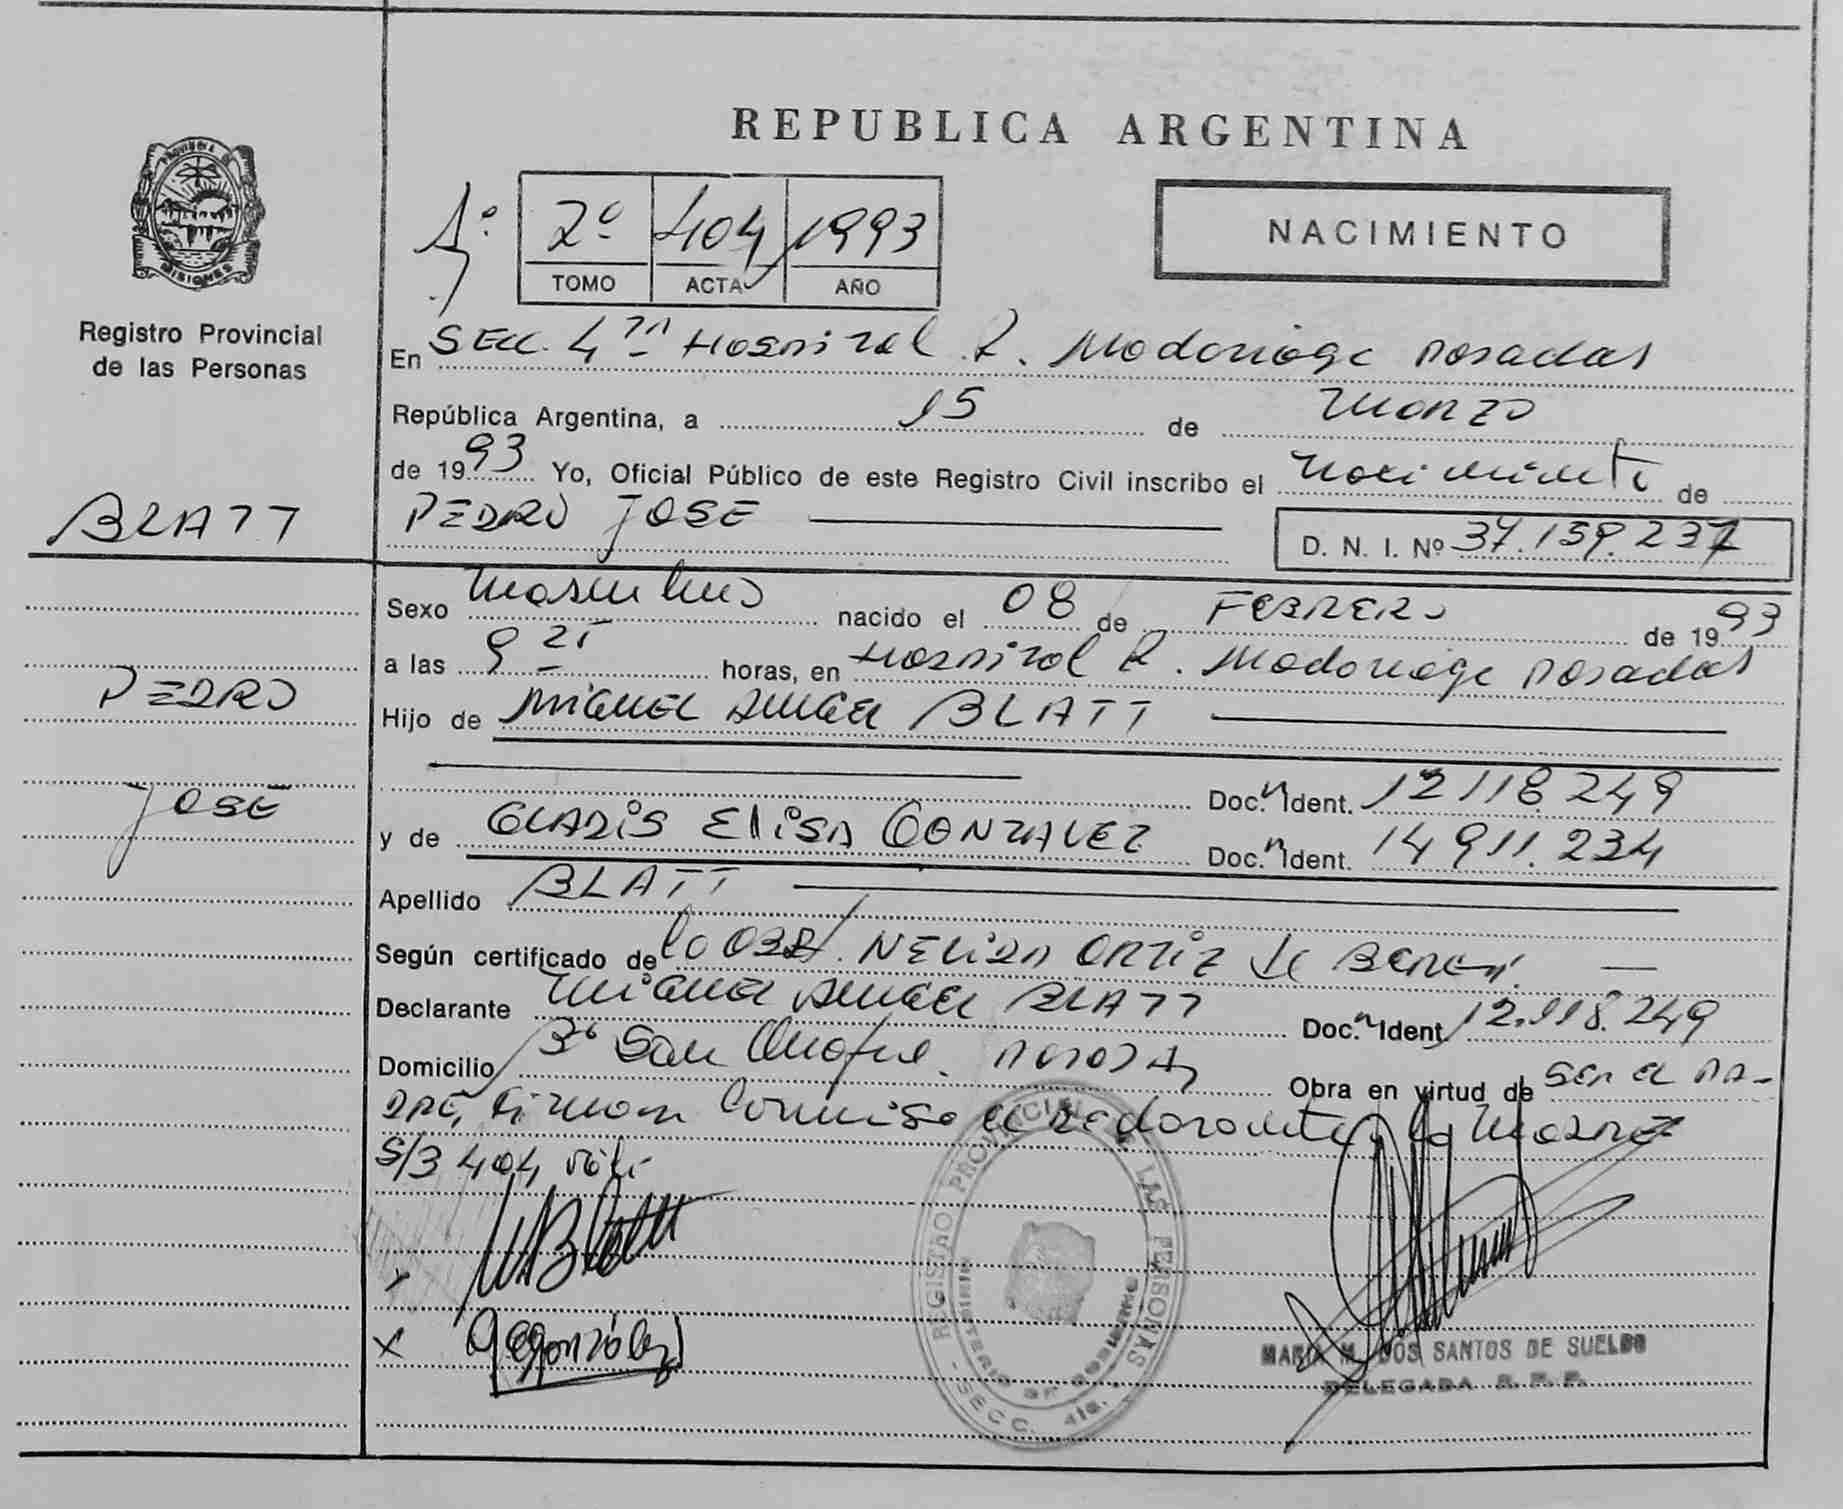 REPUBLICA ARGENTINA
PROVINCIA DE
MISIONES
Registro Provincial
de las Personas
2º 404 1993
TOMO ACTA AÑO
NACIMIENTO
En Secc. 4ta Hospital R. Madariaga Posadas
República Argentina, a 15 de Marzo
de 1993 Yo, Oficial Público de este Registro Civil inscribo el nacimiento de
BLATT
PEDRO JOSE
D. N. I. Nº 37.159.237
Sexo Masculino nacido el 08 de FEBRERO de 1993
a las 9 25 horas, en Hospital R. Madariaga Posadas
PEDRO
Hijo de MIGUEL ANGEL BLATT
Doc.n Ident. 12118249
JOSE
y de GLADIS ELISA GONZALEZ Doc.n Ident. 14911.234
Apellido BLATT
Según certificado de la OBST. NELIDA ORTIZ de
Declarante MIGUEL ANGEL BLATT Doc.n Ident 12.118.249
Domicilio Bº San Onofre. Posadas Obra en virtud de Ser el Pa-
dre, Firman Conmigo el declarante y la Madre
S/B 404 Vale
MBlatt
GEGonzález
REGISTRO PROVINCIAL DE LAS PERSONAS
MINISTERIO DE GOBIERNO
- SECC. 4ta. -
MARIA M. DOS SANTOS DE SUELDO
DELEGADA R. P. P.